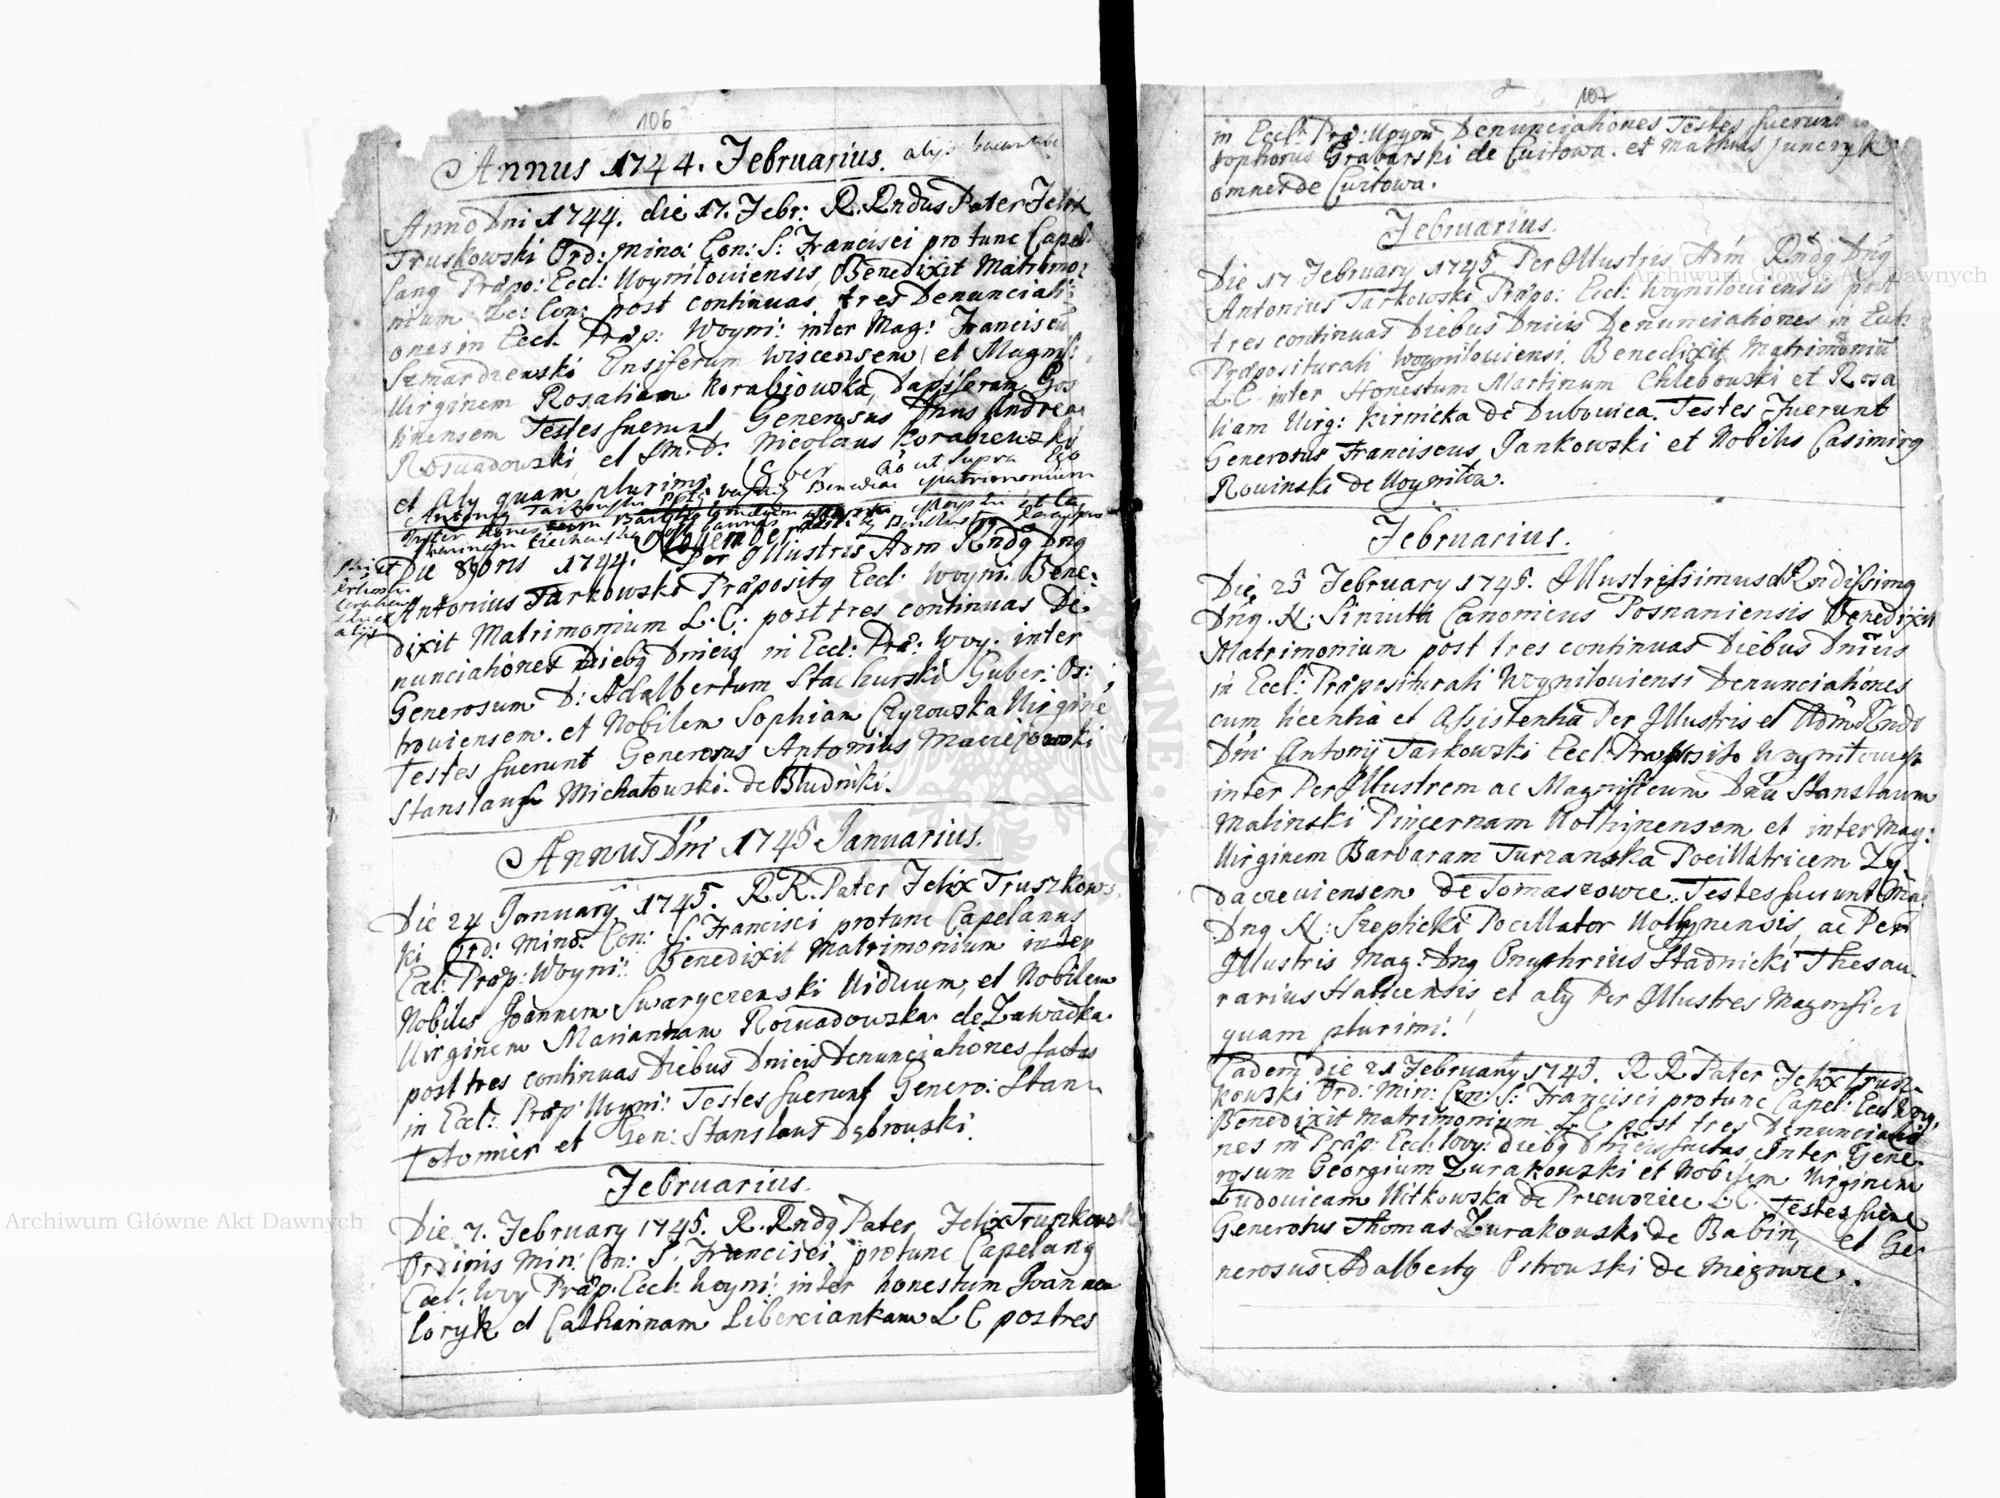 106
Annus 1744. Februarius. alys
Anno Dni 1744. die 17. Febr: R. Rndus Pater Felix
Truskowski Ord: Mino: Con: S: Francisci pro tunc Capel:
lang Præpo: Eccl: Woynitoviensis, Benedixit Matrimo:
nium L: Con: post continuas tres Denunciati:
ones in Eccl. Præp: Woyni: inter Mag: Franciscu
Szmardzewski Ensiferum Wiscensem, et Magnif:
Virginem Rosaliam Korabiowska, Dapiferam Gos
tinensem Testes fuerunt, Generosus Dnus Andreas
Rosuadowski, et Nicolaus Korabiewski
et Aly quam plurimi.
ut supra Ego
Antony Tarkowski Benedixi Matrimonium
Inter
November
Die 8bris 1744. Per Illustris Adm Rndg Dng
Antonius Tarkowski Præpositg Eccl: Woyni: Bene:
dixit Matrimonium L. C. post tres continuas De:
nunciationes Diebg Dnicis in Eccl: Præ: Woy: inter
Generosum D: Adalbertum Stachurski Guber: Os:
troviensem. et Nobilem Sophiam Czyzowska Virgine
Testes fuerunt Generosus Antonius Maciejowski
Stanslaus Michałowski. de Bludniki.
Annus Dni 1745 Januarius.
Die 24 January 1745. R. R. Pater Felix Truszkows
ki Ord: Mino: Con: S. Francisci protunc Capelanus
Eccl: Præp: Woyni: Benedixit Matrimonium inter
Nobiles Joannem Swaryczewski Viduum, et Nobilem
Virginem Mariannam Rosuadowska de Zawadka
post tres continuas Diebus Dnicis Denunciationes factas
in Eccl: Præp: Woyni: Testes fuerunt Genero: Stan:
Totomier et Gen: Stanslaus Dębrowski.
Februarius.
Die 7. February 1745. R. Rndg Pater Felix Truszkowsk
Ordinis Min: Con: S. Francisci protunc Capelang
Eccl: Woy Præp: Eccl: Woyni: inter honestum Joannem
Loryk et Catharinam Liberciankam L C post tres
107
in Eccl: Præ: Woyni Denunciationes Testes fuerunt
tophorus Grabarski de Cwitowa. et Mathias Junczyk
omnes de Cwitowa.
Februarius.
Die 17 February 1745 Per Illustris Adm Rndg Dng
Antonius Tarkowski Præpo: Eccl: Woynitoviensis post
tres continuas Diebus Dnicis Denunciationes in Eccl:
Præpositurali Woynitoviensi, Benedixit Matrimoniu
L C inter Honestum Martinum Chlebowski et Rosa
liam Virg: Kirnicka de Dubovica. Testes Fuerunt
Generosus Franciscus Jankowski et Nobilis Casimirg
Rowinski de Woynitow.
Februarius.
Die 25 February 1745. Illustrissimus et Rndissimg
Dng. N: Siniuta Canonicus Posnaniensis Benedixit
Matrimonium post tres continuas Diebus Dnicis
in Eccl: Præpositurali Woynitoviensi Denunciationes
cum licentia et Assistentia Per Illustris et Adm Rndo
Dni Antony Tarkowski Eccl: Præposito Woynitow
inter Per Illustrem ac Magnificum Dnu Stanslaum
Malinski Pincernam Wolhinensem et inter Mag:
Virginem Barbaram Turzanska Pocillatricem Zy
daczeviensem de Tomaszowce. Testes fuerunt Ma:
Dng N: Szeptieki Pocillator Wolhynensis, ac Per
Illustris Mag: Dng Onuphrius Stadnicki Thesau
rarius Halicensis, et aly Per Illustres Magnifici
quam plurimi.
Eadem die 21 February 1745. R R Pater Felix Trusz
kowski Ord: Min: Con: S: Francisci protunc Capel: Eccl: Woy:
Benedixit Matrimonium L C post tres Denunciatio
nes in Præp: Eccl: Woy: diebg Dnicis factas Inter Gene
rosum Georgium Zurakowski et Nobilem Virginem
Ludovicam Witkowska de Przewoziec L C. Testes fuere
Generosus Thomas Zurakowski de Babin, et Ge
nerosus Adalbertg Ostrowski de Mięzowce.
Archiwum Główne Akt Dawnych
Archiwum Główne Akt Dawnych